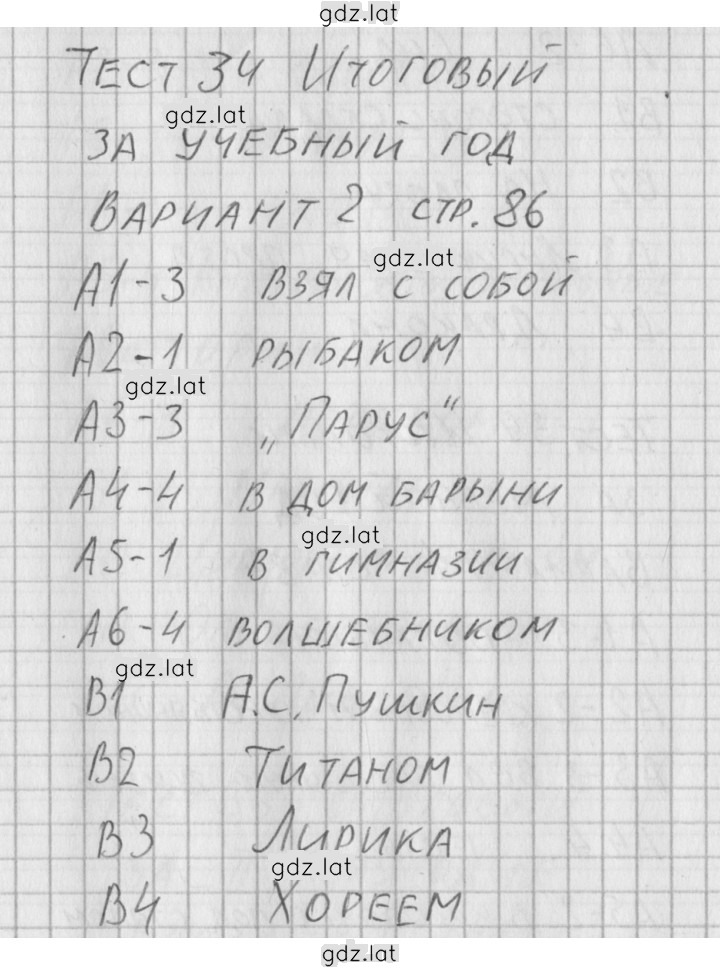 gdz.lat
Тест 34 Итоговый
gdz.lat
за учебный год
Вариант 2 стр. 86
gdz.lat
А1-3 взял с собой
А2-1 рыбаком
gdz.lat
А3-3 „Парус“
А4-4 в дом барыни
gdz.lat
А5-1 в гимназии
А6-4 волшебником
gdz.lat
В1 А.С. Пушкин
В2 Титаном
В3 Лирика
gdz.lat
В4 Хореем
gdz.lat